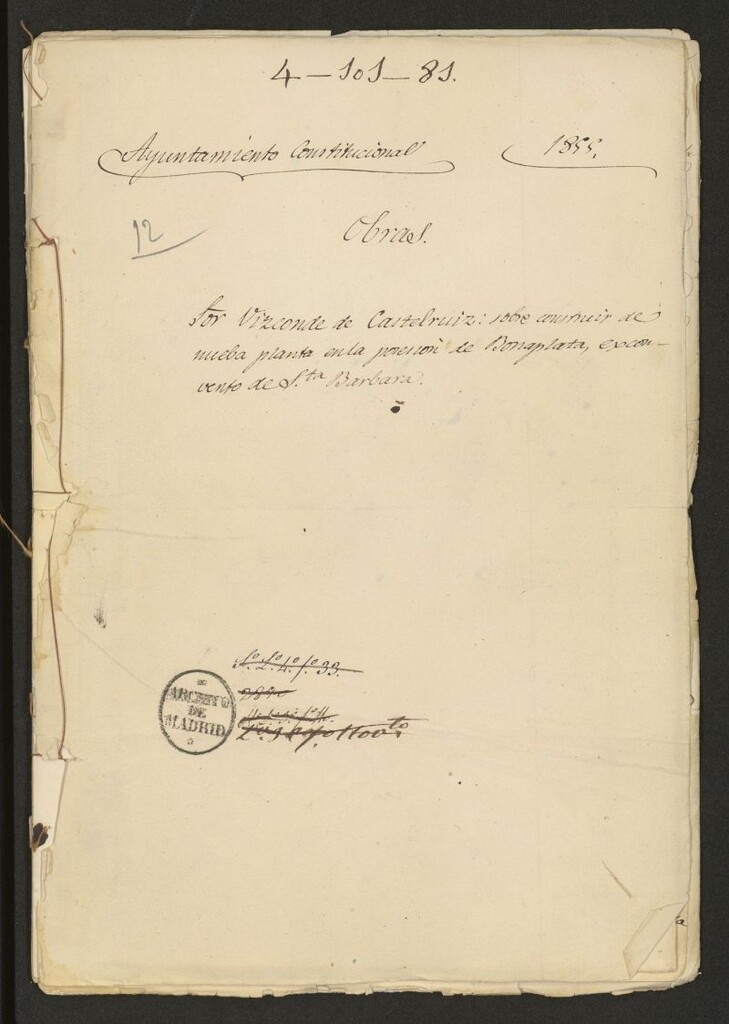 4-101-81.
Ayuntamiento Constitucional
1855.
12
Obras.
Sor Vizconde de Castelruiz: sobre construir de
nueba planta en la posesion de Bonaplata, excon-
vento de S.ta Barbara.
ARCHIVO
DE
MADRID